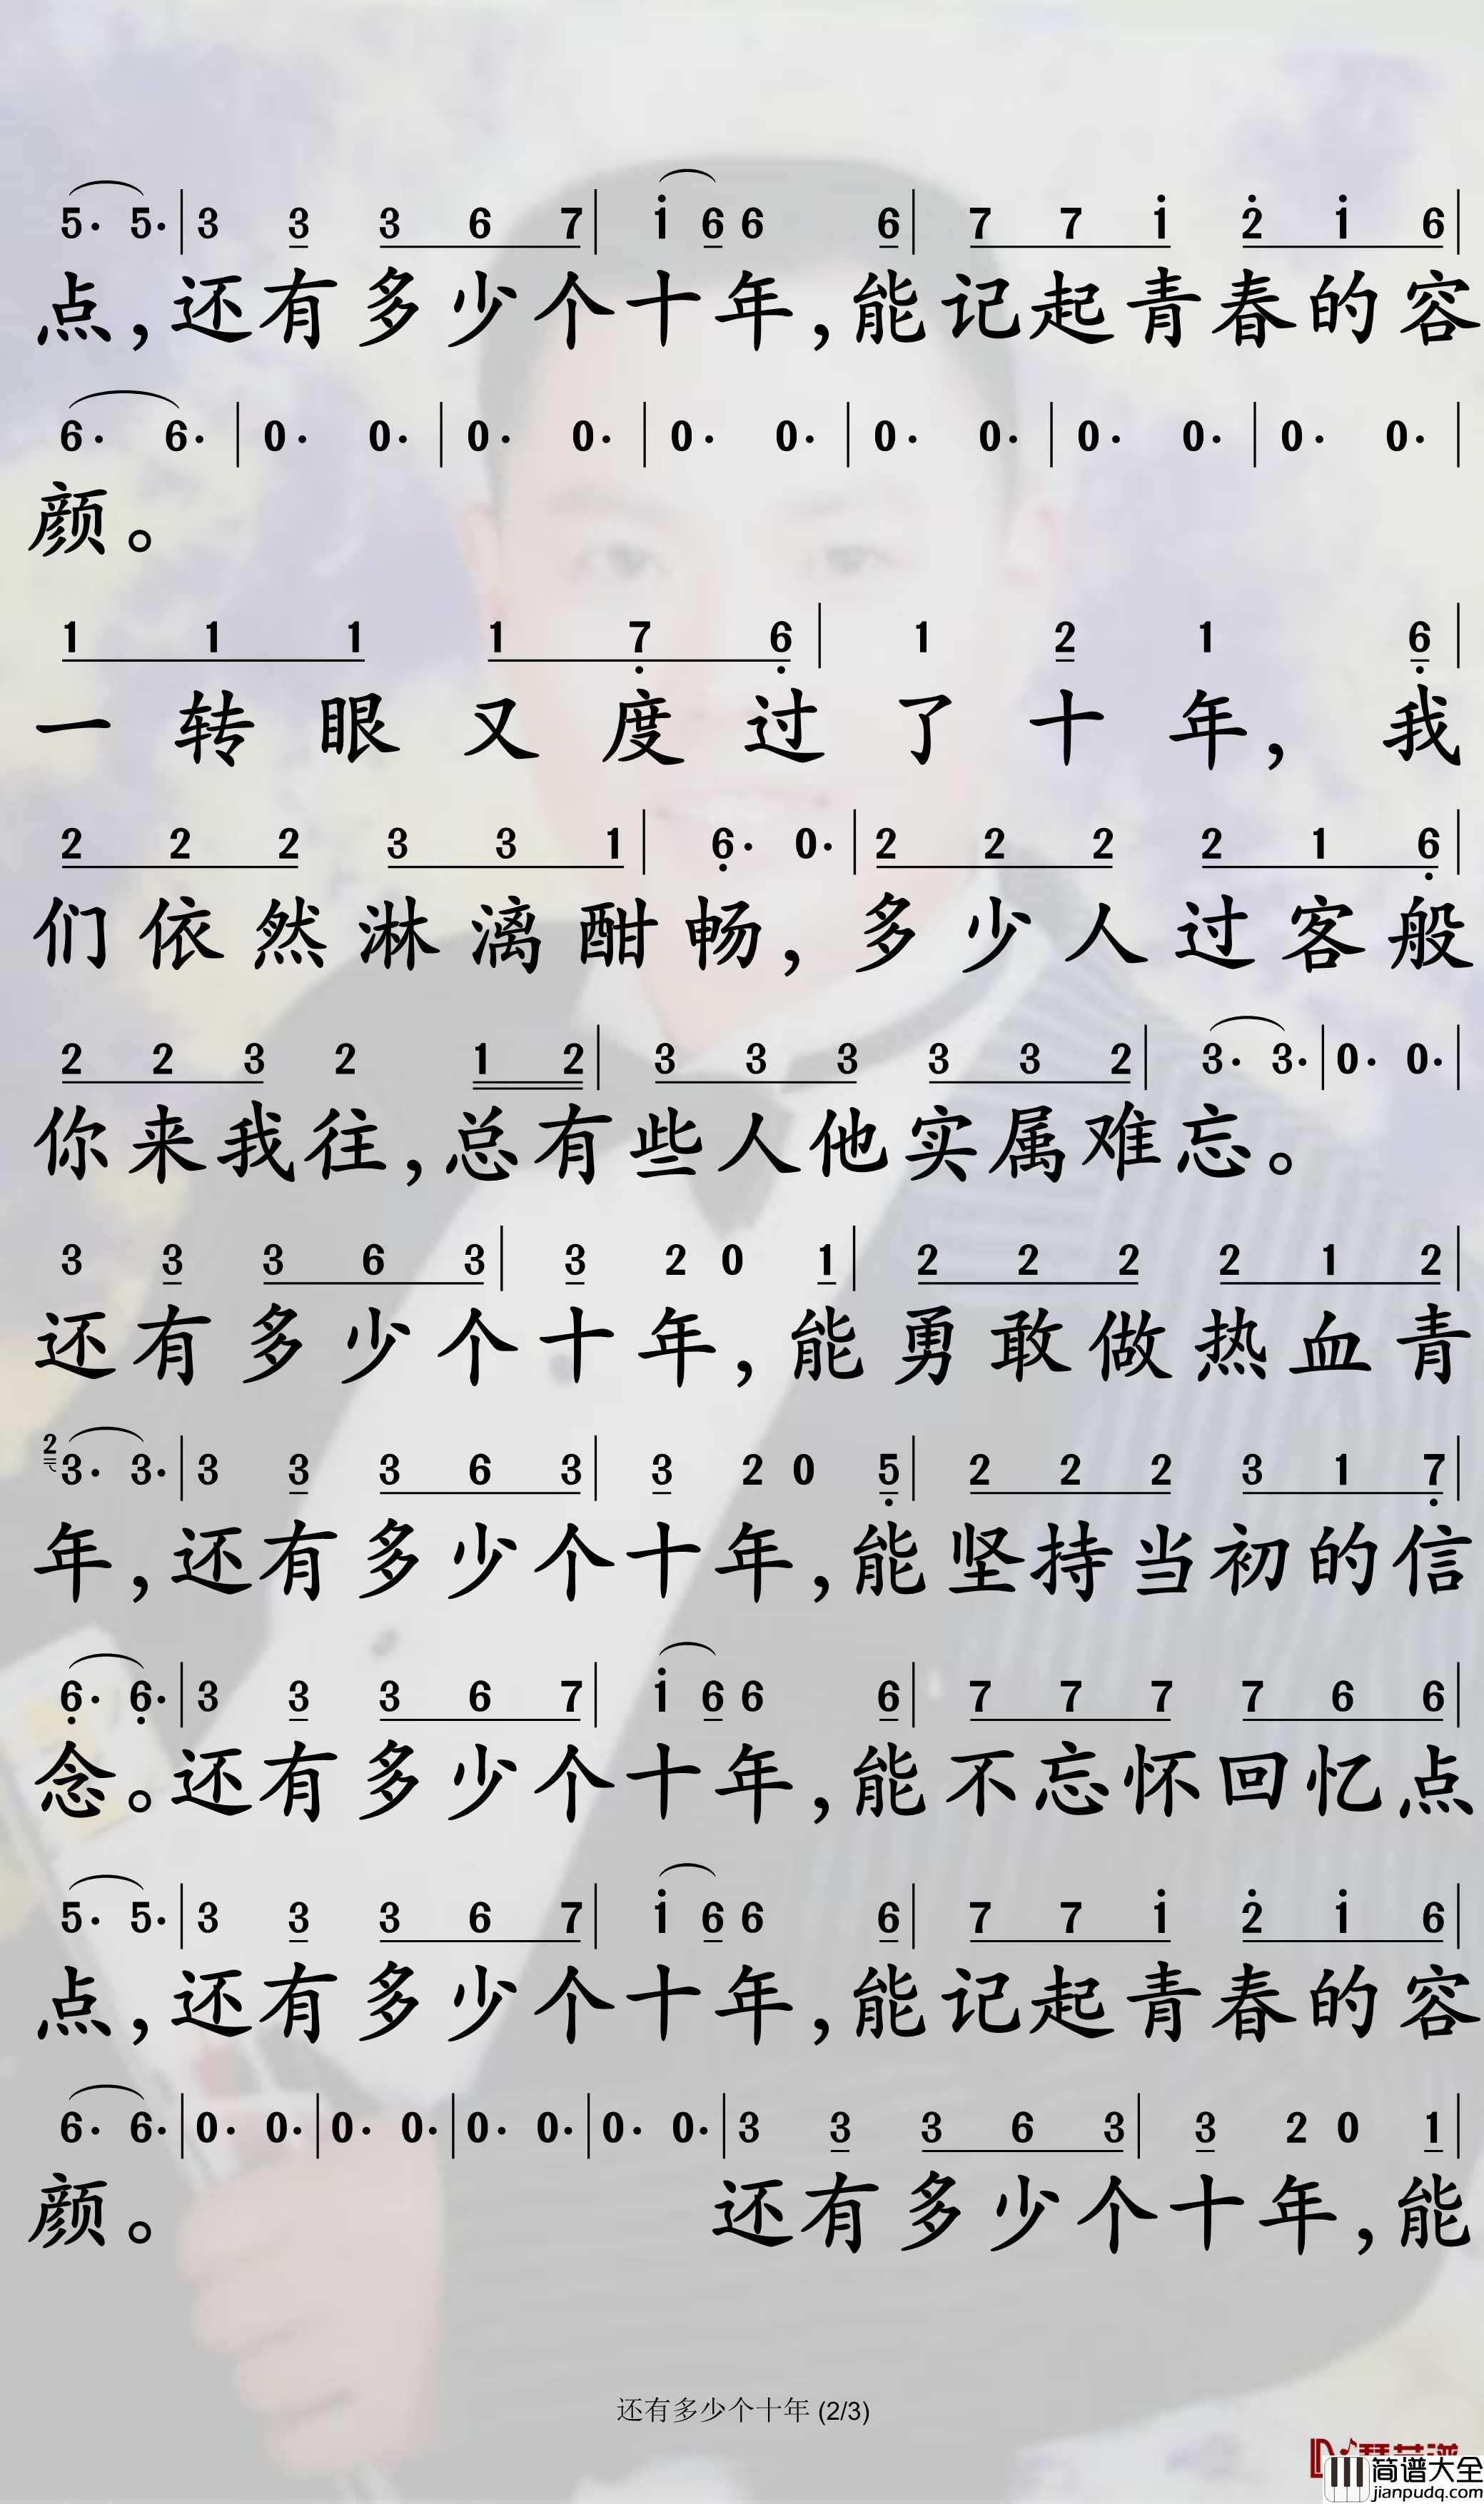 5· 5· | 3 3 3 6 7 | i 6 6 6 | 7 7 i 2 i 6 |
点,还有多少个十年,能记起青春的容
6· 6· | 0· 0· | 0· 0· | 0· 0· | 0· 0· | 0· 0· | 0· 0· |
颜。
1 1 1 1 7 6 | 1 2 1 6 |
一转眼又度过了十年,我
2 2 2 3 3 1 | 6· 0· | 2 2 2 2 1 6 |
们依然淋漓酣畅,多少人过客般
2 2 3 2 1 2 | 3 3 3 3 3 2 | 3· 3· | 0· 0· |
你来我往,总有些人他实属难忘。
3 3 3 6 3 | 3 2 0 1 | 2 2 2 2 1 2 |
还有多少个十年,能勇敢做热血青
2 3· 3· | 3 3 3 6 3 | 3 2 0 5 | 2 2 2 3 1 7 |
年,还有多少个十年,能坚持当初的信
6· 6· | 3 3 3 6 7 | i 6 6 6 | 7 7 7 7 6 6 |
念。还有多少个十年,能不忘怀回忆点
5· 5· | 3 3 3 6 7 | i 6 6 6 | 7 7 i 2 i 6 |
点,还有多少个十年,能记起青春的容
6· 6· | 0· 0· | 0· 0· | 0· 0· | 0· 0· | 3 3 3 6 3 | 3 2 0 1 |
颜。还有多少个十年,能
还有多少个十年 (2/3)
简谱大全
jianpudq.com